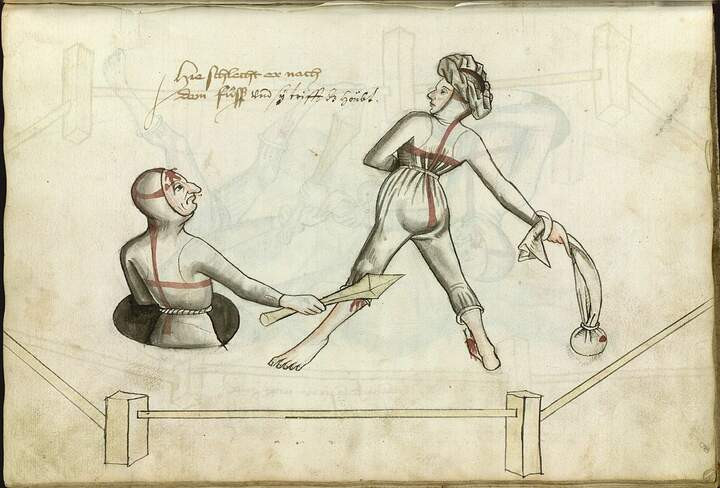 Hie schlecht er nach
dem fůsß und sy trifft das höubt.